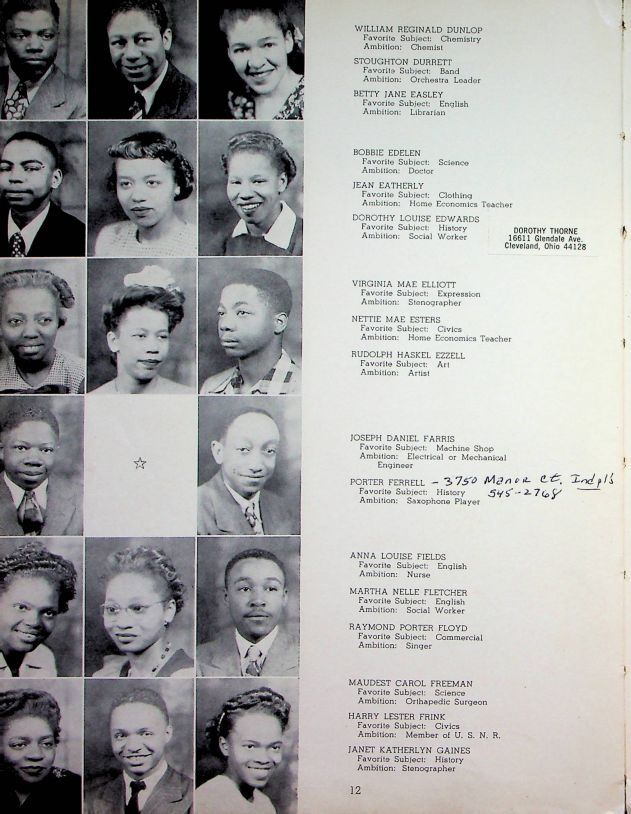 WILLIAM REGINALD DUNLOP
Favorite Subject: Chemistry
Ambition: Chemist
STOUGHTON DURRETT
Favorite Subject: Band
Ambition: Orchestra Leader
BETTY JANE EASLEY
Favorite Subject: English
Ambition: Librarian
BOBBIE EDELEN
Favorite Subject: Science
Ambition: Doctor
JEAN EATHERLY
Favorite Subject: Clothing
Ambition: Home Economics Teacher
DOROTHY LOUISE EDWARDS
Favorite Subject: History
Ambition: Social Worker
DOROTHY THORNE
16611 Glendale Ave.
Cleveland, Ohio 44128
VIRGINIA MAE ELLIOTT
Favorite Subject: Expression
Ambition: Stenographer
NETTIE MAE ESTERS
Favorite Subject: Civics
Ambition: Home Economics Teacher
RUDOLPH HASKEL EZZELL
Favorite Subject: Art
Ambition: Artist
JOSEPH DANIEL FARRIS
Favorite Subject: Machine Shop
Ambition: Electrical or Mechanical
Engineer
PORTER FERRELL - 3750 Manor Ct. Indpls
Favorite Subject: History 545-2768
Ambition: Saxophone Player
ANNA LOUISE FIELDS
Favorite Subject: English
Ambition: Nurse
MARTHA NELLE FLETCHER
Favorite Subject: English
Ambition: Social Worker
RAYMOND PORTER FLOYD
Favorite Subject: Commercial
Ambition: Singer
MAUDEST CAROL FREEMAN
Favorite Subject: Science
Ambition: Orthapedic Surgeon
HARRY LESTER FRINK
Favorite Subject: Civics
Ambition: Member of U. S. N. R.
JANET KATHERLYN GAINES
Favorite Subject: History
Ambition: Stenographer
12